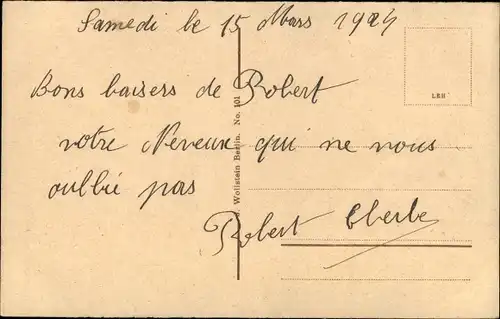 Samedi le 15 Mars 1924
Bons baisers de Robert
votre Neveux qui ne nous
oublie pas
Robert Eberle
LBH
Wollstein Berlin. No. 101